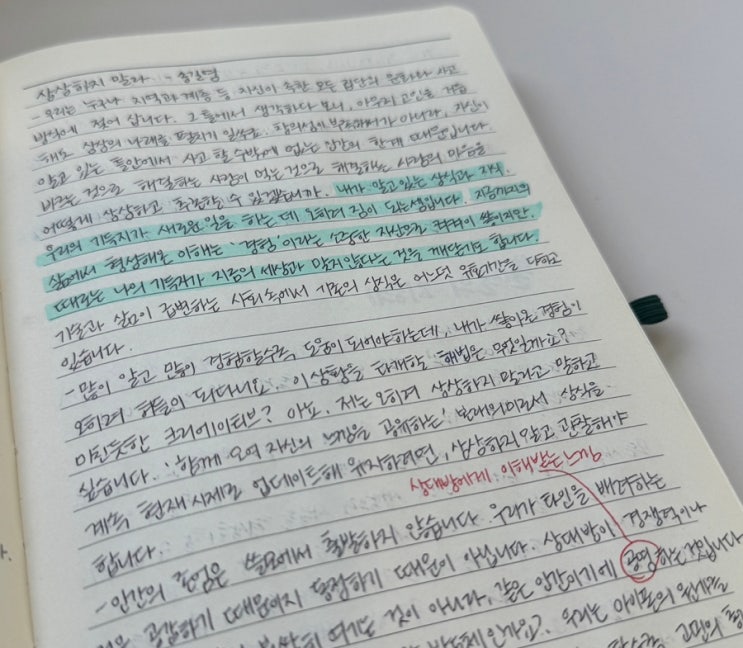 상상하지 말라 - 송길영
- 우리는 누구나 지역과 계층 등 자신이 속한 모든 집단의 문화와 사고
방식에 젖어 삽니다. 그 틀에서 생각하다 보니, 아무리 고민을 거듭
해도 상상의 나래를 펼치기 일쑤죠. 창의성이 부족해서가 아니라, 자신이
알고 있는 틀안에서 사고 할 수밖에 없는 인간의 한계 때문입니다.
바르는 것으로 해결하는 사람이 먹는 것으로 해결하는 사람의 마음을
어떻게 상상하고 추론할 수 있겠습니까. 내가 알고있는 상식과 지식,
우리의 기득지가 새로운 일을 하는 데 오히려 짐이 되는 셈입니다. 지금까지의
삶에서 형성해온 이해는 '경험'이라는 소중한 자산으로 켜켜이 쌓이지만,
때로는 나의 기득지가 지금의 세상과 맞지 않다는 것을 깨닫기도 합니다.
기술과 삶이 급변하는 사회 속에서 기존의 상식은 어느덧 유효기간을 다하고
있습니다.
- 많이 알고 많이 경험할수록 도움이 되어야하는데, 내가 쌓아온 경험이
오히려 허들이 되다니요. 이 상황을 타개할 해법은 무엇일까요?
미친듯한 크리에이티브? 아뇨. 저는 오히려 상상하지 말라고 말하고
싶습니다. '함께 모여 자신의 느낌을 공유하는' 본래의미로서 상식을
계속 현재 시제로 업데이트해 유지하려면, 상상하지 않고 관찰해야
합니다.
상대방에게 이해받는 느낌
- 인간의 존엄은 쓸모에서 출발하지 않습니다. 우리가 타인을 배려하는
것은 공감하기 때문이지 동정하기 때문이 아닙니다. 상대방이 경쟁력이나
불쌍히 여기는 것이 아니라, 같은 인간이기에 공명하는 것입니다
우리는 아이폰의